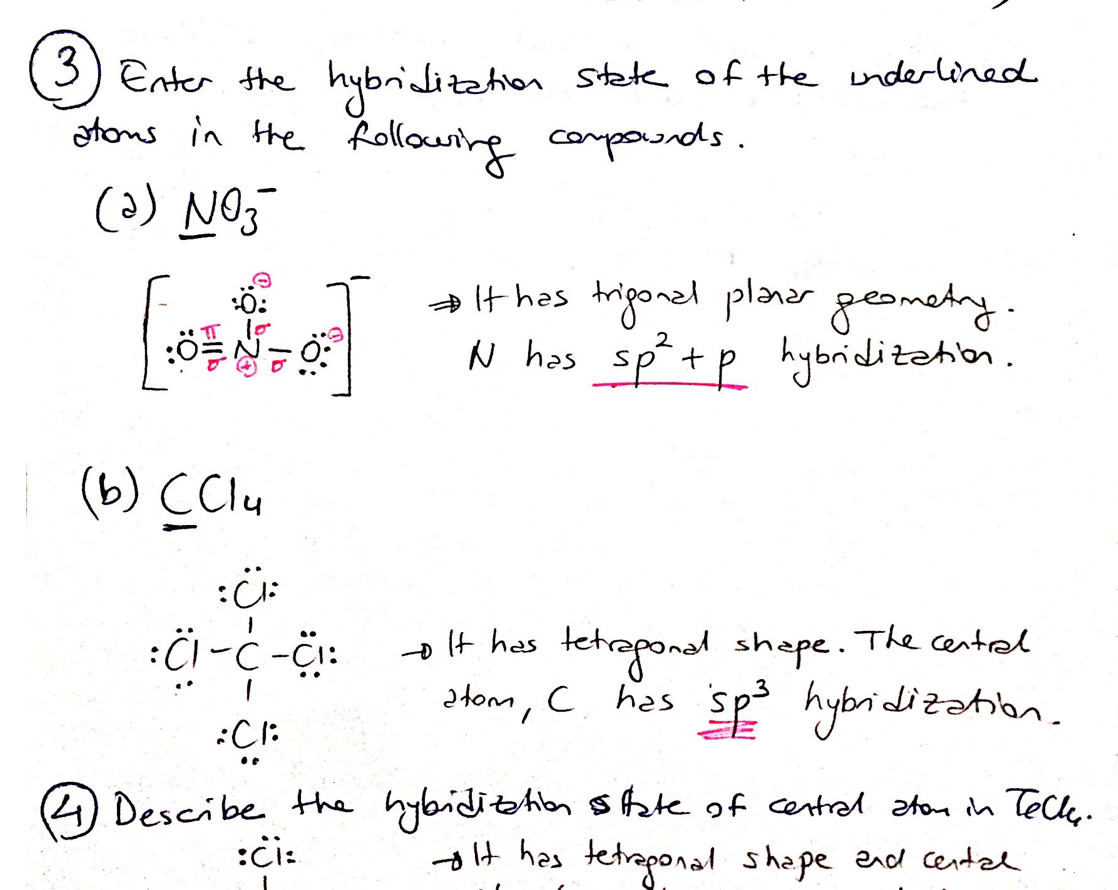 3 Enter the hybridization state of the underlined
atoms in the following compounds.
(a) NO₃⁻
[:Ö=N-Ö:]⁻ :Ö: ⊖ π σ σ ⊕ σ ⊖
⇒ It has trigonal planar geometry.
N has sp² + p hybridization.
(b) CCl₄
:Cl:
:Cl-C-Cl:
:Cl:
→ It has tetragonal shape. The central
atom, C has sp³ hybridization.
4 Describe the hybridization state of central atom in TeCl₄.
:Cl:
→ It has tetragonal shape and